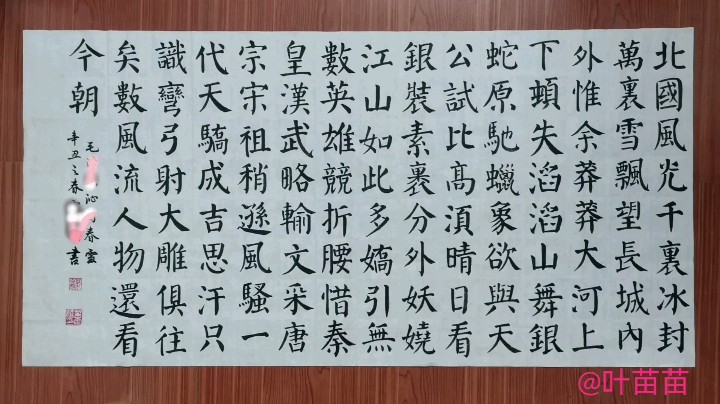 北國風光千裏冰封
萬裏雪飄望長城內
外惟余莽莽大河上
下頓失滔滔山舞銀
蛇原馳蠟象欲與天
公試比髙須晴日看
銀裝素裹分外妖嬈
江山如此多嬌引無
數英雄競折腰惜秦
皇漢武略輸文采唐
宗宋祖稍遜風騷一
代天驕成吉思汗只
識彎弓射大雕俱往
矣數風流人物還看
今朝
毛 沁 春雪
辛丑之春 書
@叶苗苗